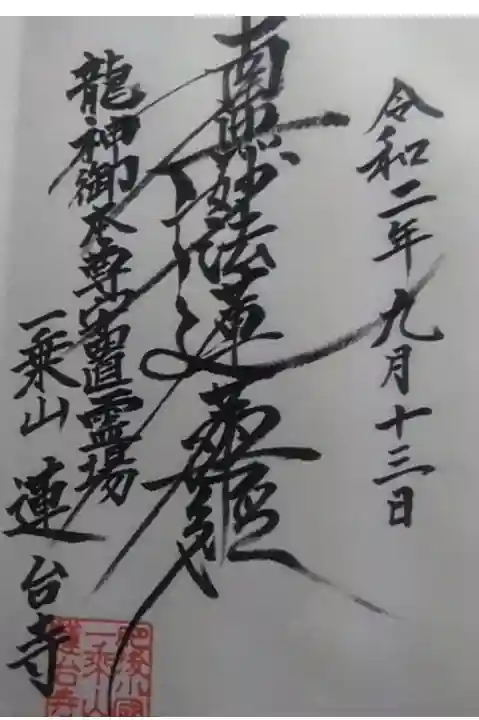 令和二年九月十三日
南無妙法蓮華経
龍神御本尊安置霊場
一乗山 蓮台寺
肥後小國
一乗山
蓮台寺